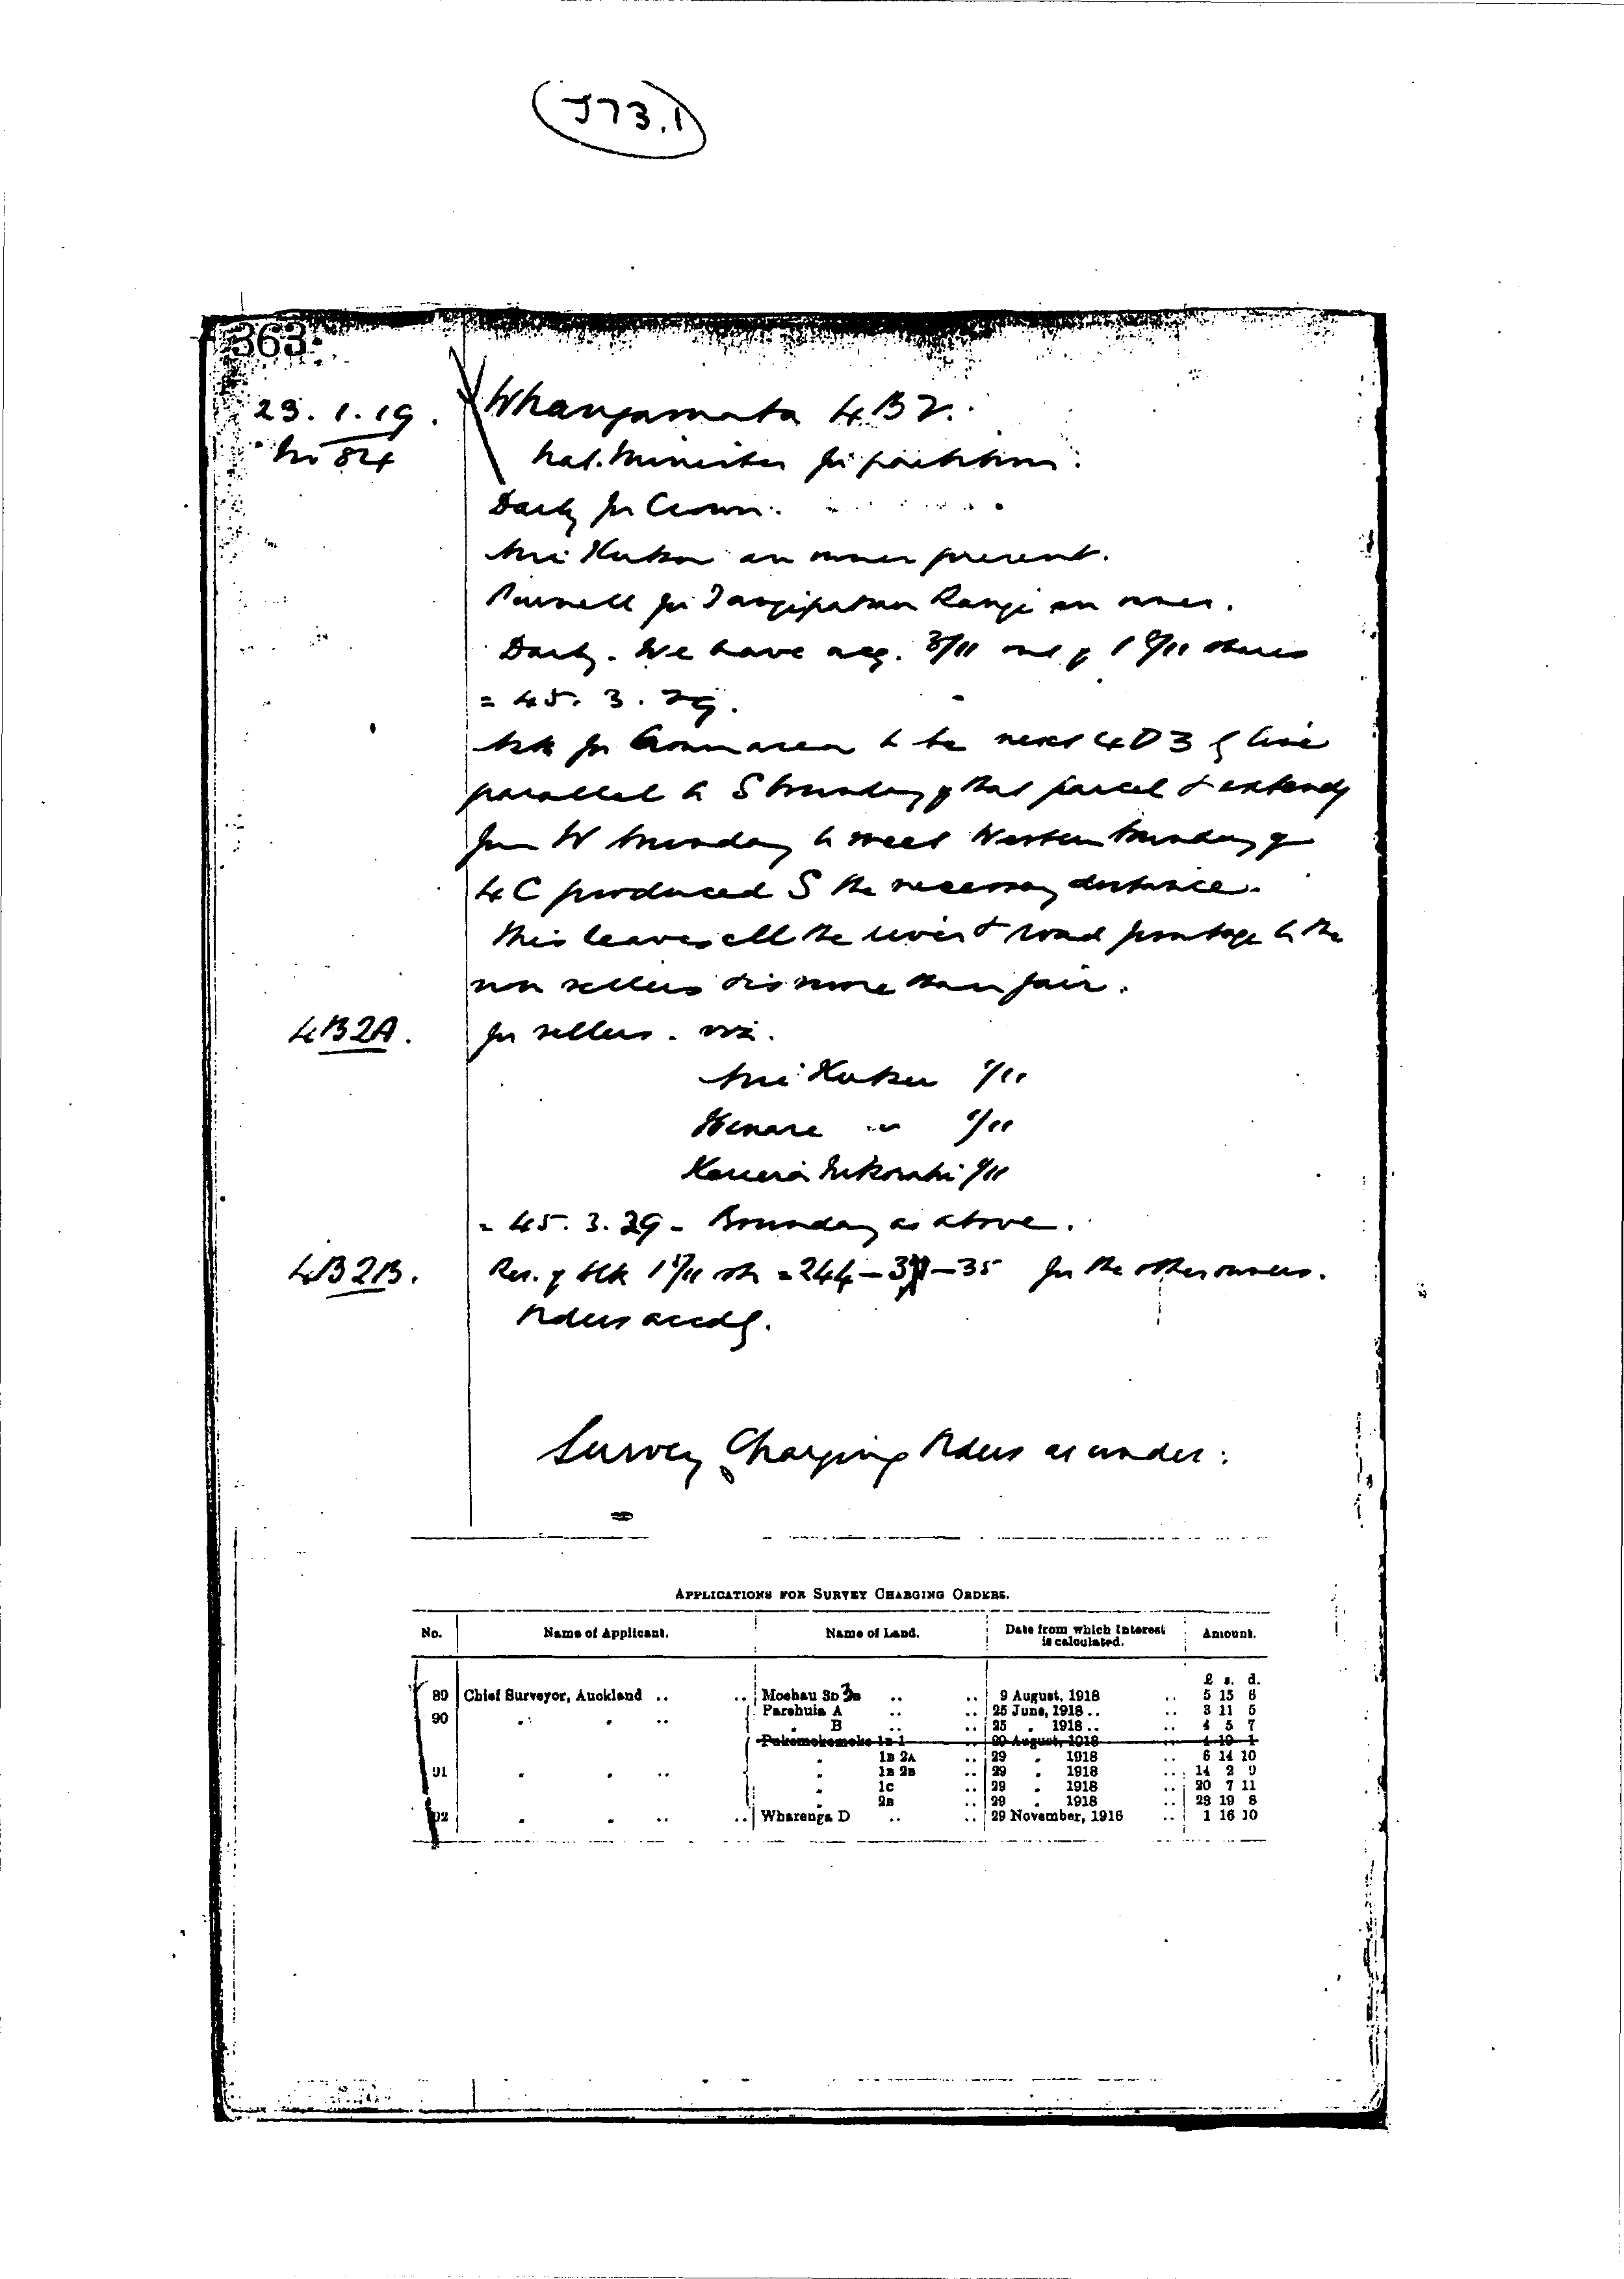 J73.1
363
23.1.19. Whangamata 4B2.
No 84 Nat. Minister for partition.
Darby for Crown.
an owner present.
for Range an owner.
Darby. We have acq. 3/11 out of 1 8/11 shares
= 45. 3. 29.
Ask for Crown area to be next 4D3 & line
parallel to S boundary of that parcel & extendg
from W boundary to meet Western boundary of
4C produced S the necessary distance.
This leaves all the river & road frontage to the
non sellers & is more than fair.
4B2A. for sellers. viz.
1/11
Henare " 1/11
1/11
= 45. 3. 29 - Boundary as above.
4B2B. Res. of blk = 244 - 3 - 35 for the other owners.
Orders accdg.
Survey Charging Orders as under:
APPLICATIONS FOR SURVEY CHARGING ORDERS.
No. Name of Applicant. Name of Land. Date from which Interest is calculated. Amount.
£ s. d.
89 Chief Surveyor, Auckland .. .. Moehau 3D .. .. 9 August, 1918 .. 5 15 6
Parehuia A .. .. 25 June, 1918 .. .. 3 11 5
90 " " .. " B .. .. 25 " 1918 .. .. 4 5 7
Pukemokemoke 1B 1 .. 29 August, 1918 .. 4 10 1
" 1B 2A .. 29 " 1918 .. 6 14 10
91 " " .. " 1B 2B .. 29 " 1918 .. 14 2 9
" 1C .. 29 " 1918 .. 20 7 11
" 2B .. 29 " 1918 .. 28 19 8
92 " " .. .. Wharenga D .. .. 29 November, 1916 .. 1 16 10